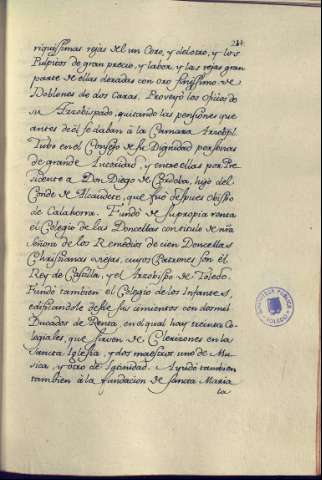 211
riquissimas rejas del un Coro, y del otro, y los
Pulpitos de gran precio, y labor, y las rejas gran
parte de ellas doradas con oro finissimo de
Doblones de dos Caras. Proveyó los Oficios de
su Arzobispado, quitando las pensiones que
antes de él se daban à la Camara Arzobpl.
Tubo en el Consejo de su Dignidad personas
de grande Autoridad, y entre ellas por Pre
sidente à Don Diego de Cordoba, hijo del
Conde de Alcaudete, que fué despues Obispo
de Calahorra. Fundó de su propia renta
el Colegio de las Doncellas con titulo de nra
señora de los Remedios de cien Doncellas
Christianas viejas, cuyos Patrones son el
Rey de Castilla, y el Arzobispo de Toledo.
Fundó tambien el Colegio de los Infantes,
edificandole desde sus cimientos con dos mil
Ducados de Renta, en el qual hay treinta Co-
legiales, que sirven de Clerizones en la
Santa Iglesia, y dos maestros uno de Mu-
sica, y otro de Latinidad. Ayudó tambien
tambien à la fundacion de Santa Maria
la
BIBLIOTECA PUBLICA
TOLEDO